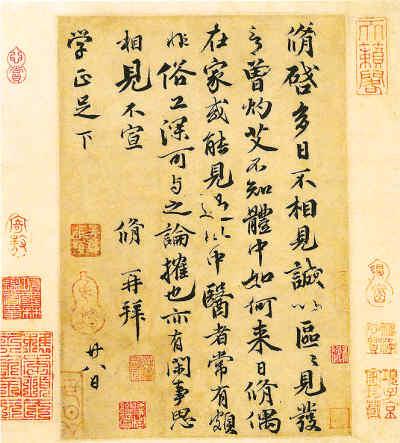 天籟閣
脩啓多日不相見誠以區〻見發
言曾灼艾不知體中如何来日脩偶
在家或能見過此中醫者常有頗
非俗工深可与之論搉也亦有閑事思
相見不宣 脩再拜
学正足下 廿八日